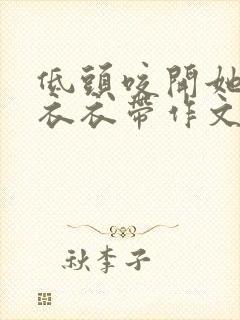 低頭咬開她
衣衣帶作文
秋李子